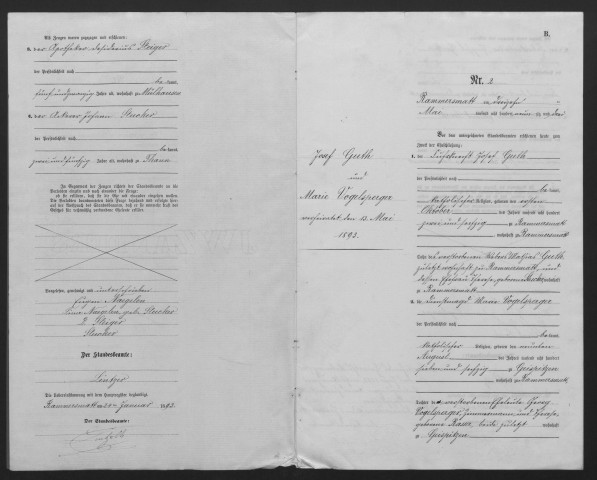 Als Zeugen waren zugezogen und erschienen:
3. der Apotheker Desiderius Steiger
der Persönlichkeit nach
be kannt,
fünfundzwanzig Jahre alt, wohnhaft zu Mülhausen
4. der Ackerer Johann Stucker
der Persönlichkeit nach
be kannt,
zweiundfünfzig Jahre alt, wohnhaft zu Thann
In Gegenwart der Zeugen richtete der Standesbeamte an die
Verlobten einzeln und nach einander die Frage:
ob sie erklären, daß sie die Ehe mit einander eingehen wollen.
Die Verlobten beantworteten diese Frage bejahend und erfolgte hier-
auf der Ausspruch des Standesbeamten, daß er sie nunmehr kraft des
Gesetzes für rechtmäßig verbundene Eheleute erkläre.
Vorgelesen, genehmigt und unterschrieben
Eugen Naegelen
Naegelen geb. Stucker
D. Steiger
Stucker
Der Standesbeamte:
Die Uebereinstimmung mit dem Hauptregister beglaubigt
Rammersmatt, Januar 1893
Der Standesbeamte:
Josef Guth
und
Marie Vogelsperger
verheiratet, den 13. Mai
1893.
B.
Nr. 2
Rammersmatt am dreizehn
Mai tausend acht hundert neunzig und drei
Vor dem unterzeichneten Standesbeamten erschienen heute zum
Zweck der Eheschließung:
1. der Josef Guth
der Persönlichkeit nach
be kannt,
katholischer Religion, geboren den ersten
Oktober des Jahres tausend acht hundert
zwei und sechzig zu Rammersmatt
wohnhaft zu Rammersmatt
Sohn des verstorbenen Mathias Guth,
zuletzt wohnhaft zu Rammersmatt, und
dessen Ehefrau Therese, geborene
Rammersmatt
2. die Dienstmagd Marie Vogelsperger
der Persönlichkeit nach
be kannt,
katholischer Religion, geboren den neunten
August des Jahres tausend acht hundert
sieben und sechzig zu
wohnhaft zu Rammersmatt
Tochter der verstorbenen Eheleute Georg
Vogelsperger, Zimmermann und Therese,
geborene Kaiser, beide zuletzt wohnhaft